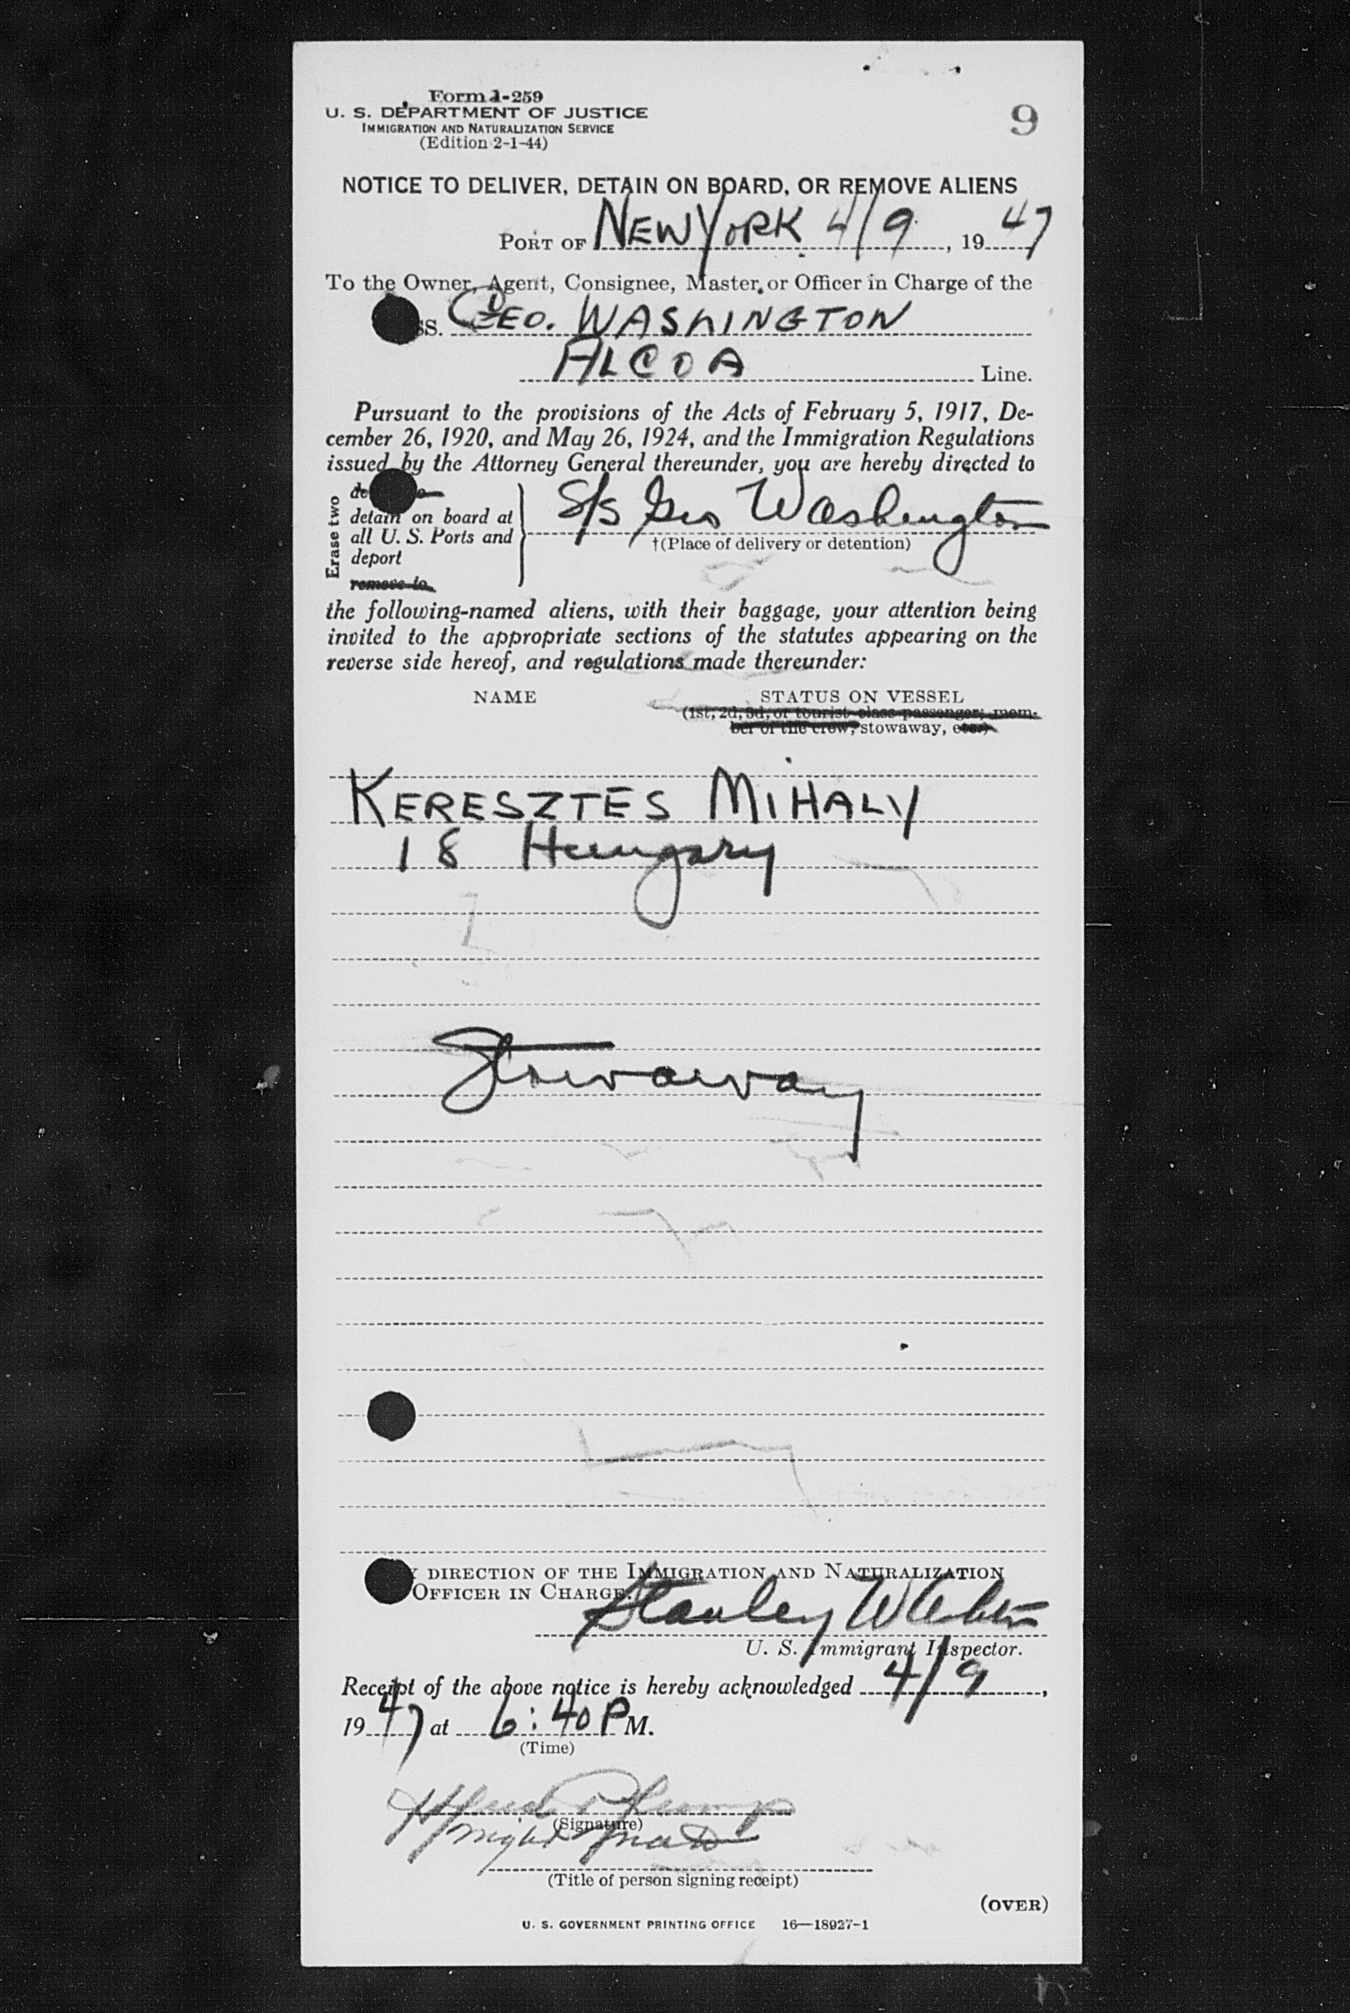 Form I-259
U. S. DEPARTMENT OF JUSTICE
IMMIGRATION AND NATURALIZATION SERVICE
(Edition 2-1-44)
9
NOTICE TO DELIVER, DETAIN ON BOARD, OR REMOVE ALIENS
PORT OF NEW YORK 4/9, 1947
To the Owner, Agent, Consignee, Master, or Officer in Charge of the
SS. GEO. WASHINGTON
ALCOA Line.
Pursuant to the provisions of the Acts of February 5, 1917, De-
cember 26, 1920, and May 26, 1924, and the Immigration Regulations
issued by the Attorney General thereunder, you are hereby directed to
Erase two
detain on board at
all U. S. Ports and
deport
remove to
S/S Geo Washington
†(Place of delivery or detention)
the following-named aliens, with their baggage, your attention being
invited to the appropriate sections of the statutes appearing on the
reverse side hereof, and regulations made thereunder:
NAME STATUS ON VESSEL
(1st, 2d, 3d, or tourist-class passenger; mem-
ber of the crew, stowaway, etc.)
KERESZTES MIHALY
18 Hungary
Stowaway
DIRECTION OF THE IMMIGRATION AND NATURALIZATION
OFFICER IN CHARGE.
Stanley
U. S. Immigrant Inspector.
Receipt of the above notice is hereby acknowledged 4/9,
1947 at 6:40 P M.
(Time)
(Signature)
(Title of person signing receipt)
(OVER)
U. S. GOVERNMENT PRINTING OFFICE 16—18927-1